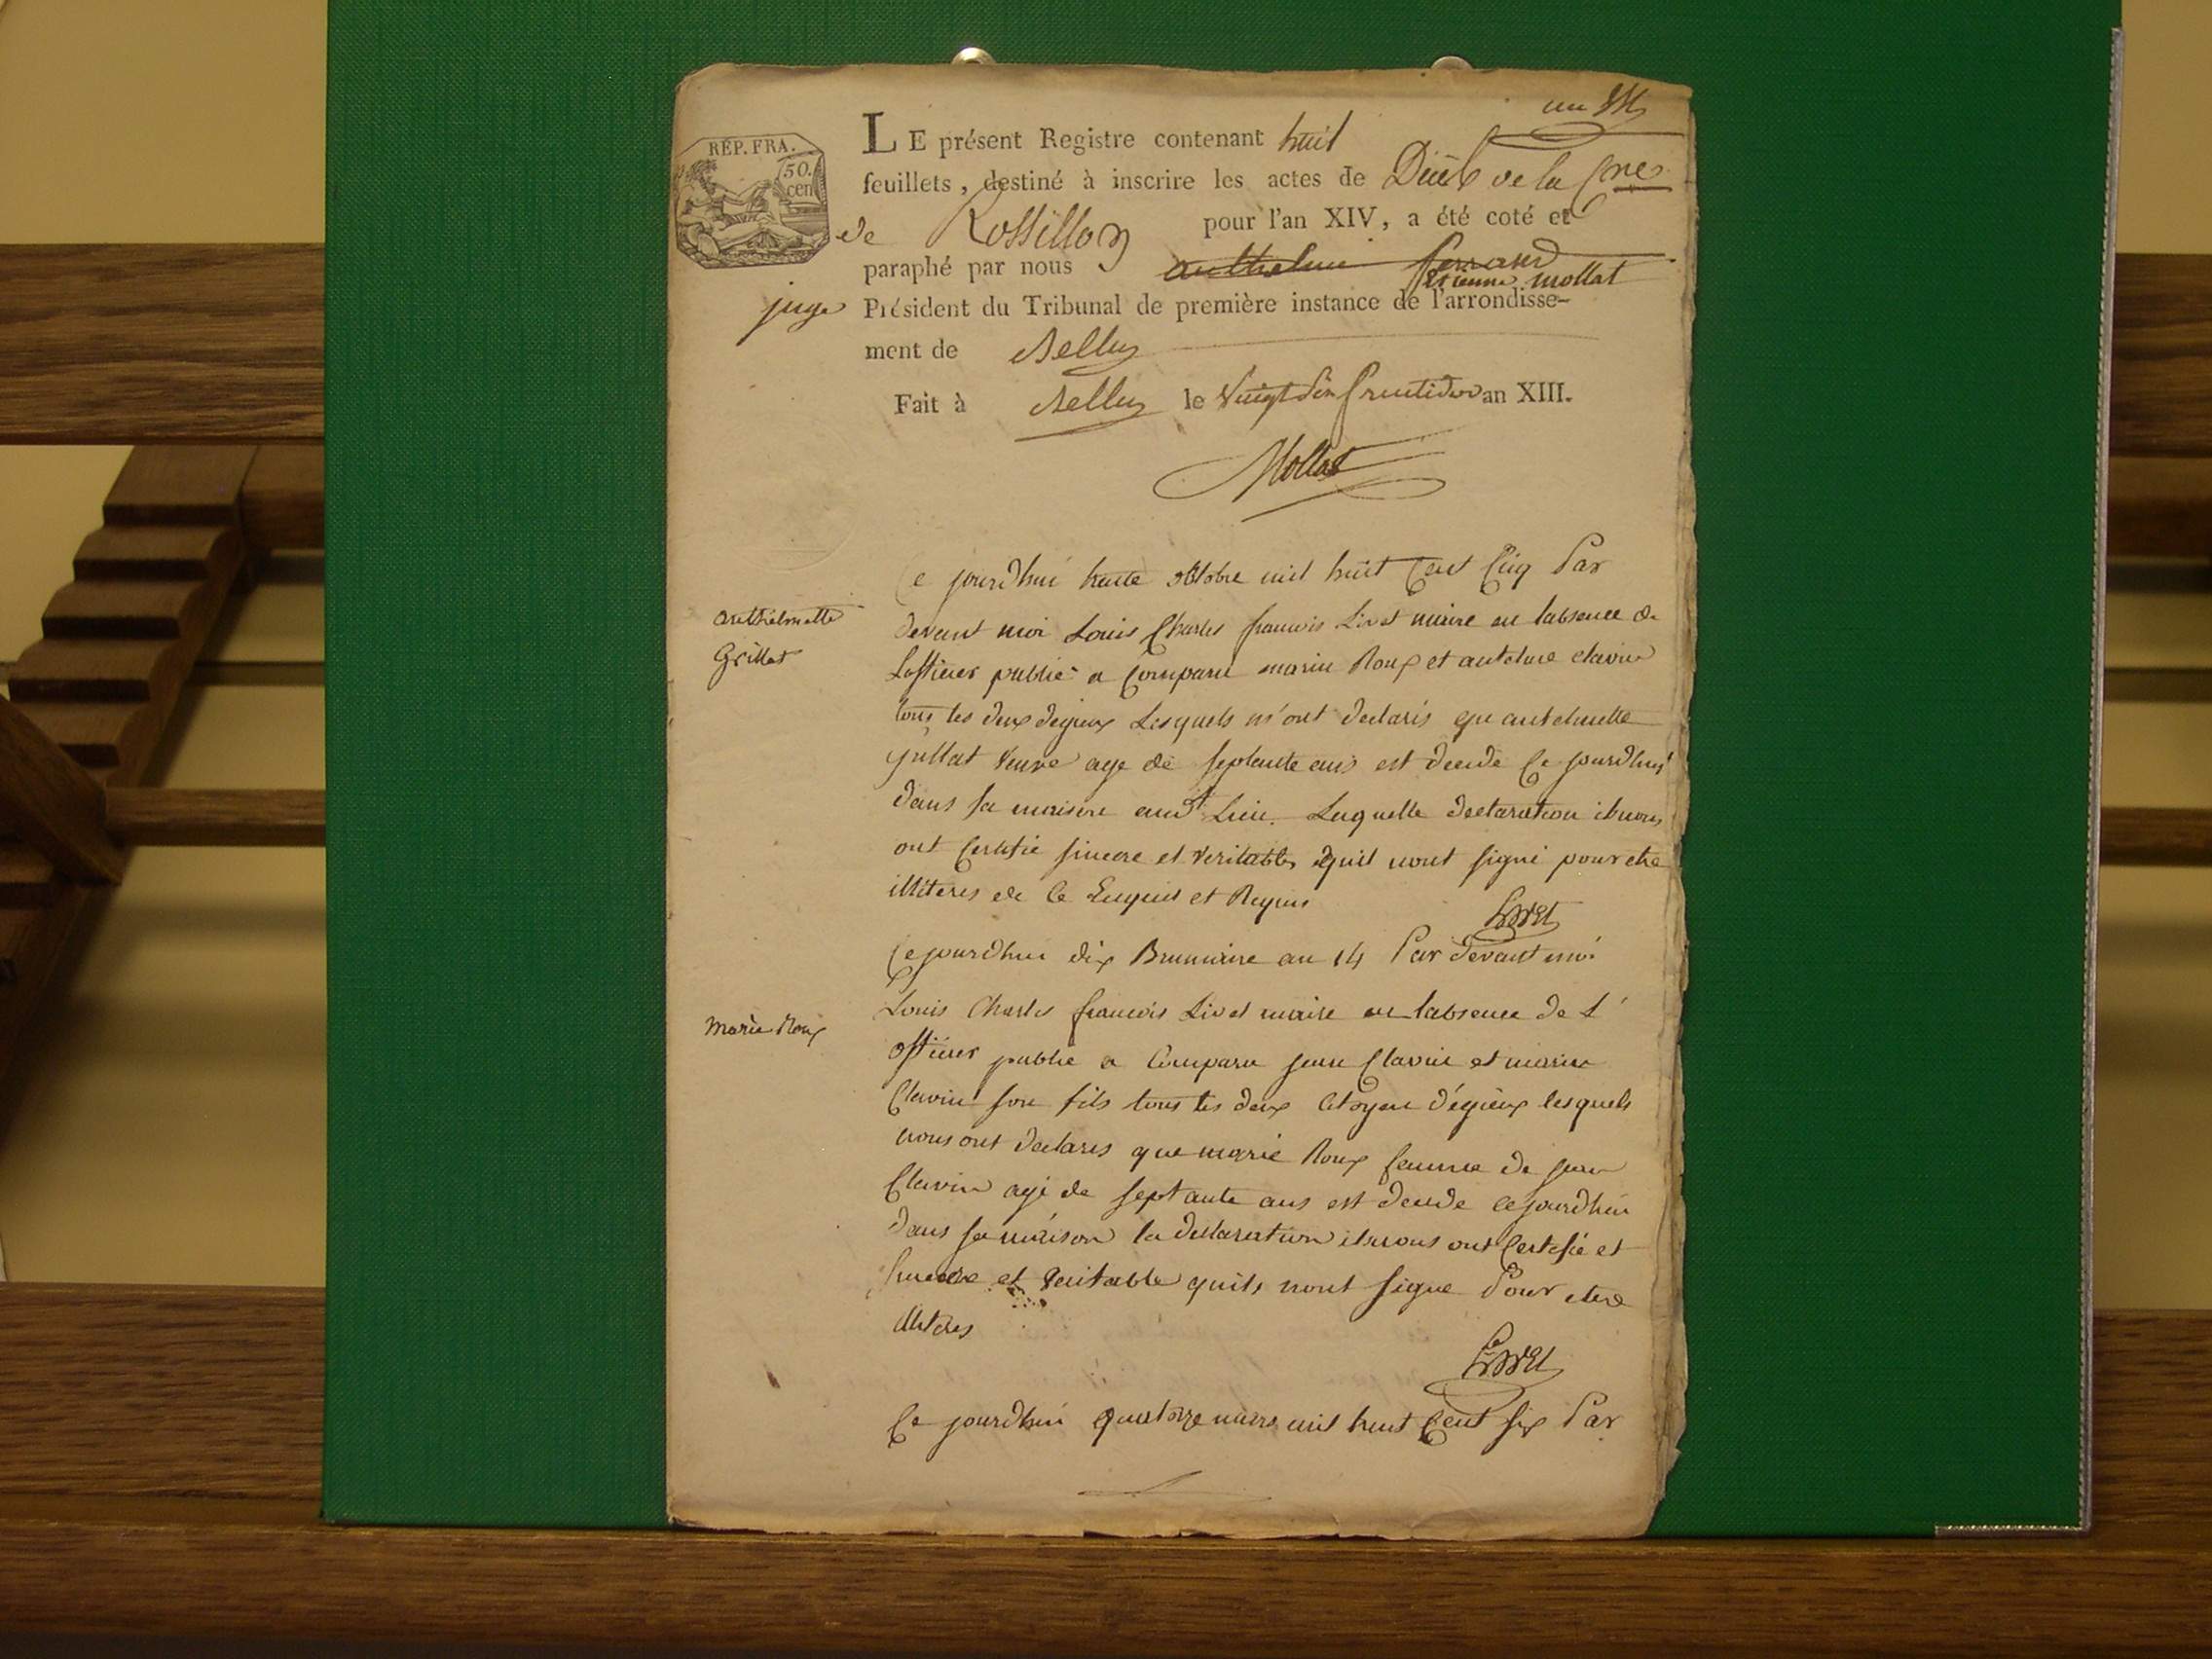 RÉP. FRA.
50.
cen
LE présent Registre contenant huit
feuillets, destiné à inscrire les actes de Décès de la Cne
de Rossillon pour l'an XIV, a été coté et
paraphé par nous anthelme ferrand
Etienne mollat
juge Président du Tribunal de première instance de l'arrondisse-
ment de Belley
Fait à Belley le Vingt fructidor an XIII.
Mollat
Ce jourdhui trente octobre mil huit Cent Cinq Par
anthelmette
Grillat
devant moi Louis Charles francois Livet maire en labsence de
Lofficier public a Comparu marin Roux et antelme clavin
tous les deux degieux Lesquels m'ont declarés que antelmette
grillat veuve age de septante ans est decede Ce jourdhuy
dans sa maison audt Lieu. Laquelle declaration ils nous
ont Certifie sincere et veritable quil nont signé pour etre
illiteres de Ce Enquis et Requis
Livet
Cejourdhui dix Brumaire an 14 Par devant moi
Marie Roux
Louis Charles francois Livet maire en labsence de L'
officier public a Comparu jean Clavin et marin
Clavin son fils tous les deux Citoyen d'égieux lesquels
nous ont declarés que marie Roux femme de jean
Clavin agé de septante ans est decede cejourdhui
dans sa maison la declaration ils nous ont Certefié et
sincere et veritable quils nont signe Pour etre
illiteres
Livet
Ce jourdhui quatorze mars mil huit Cent six Par